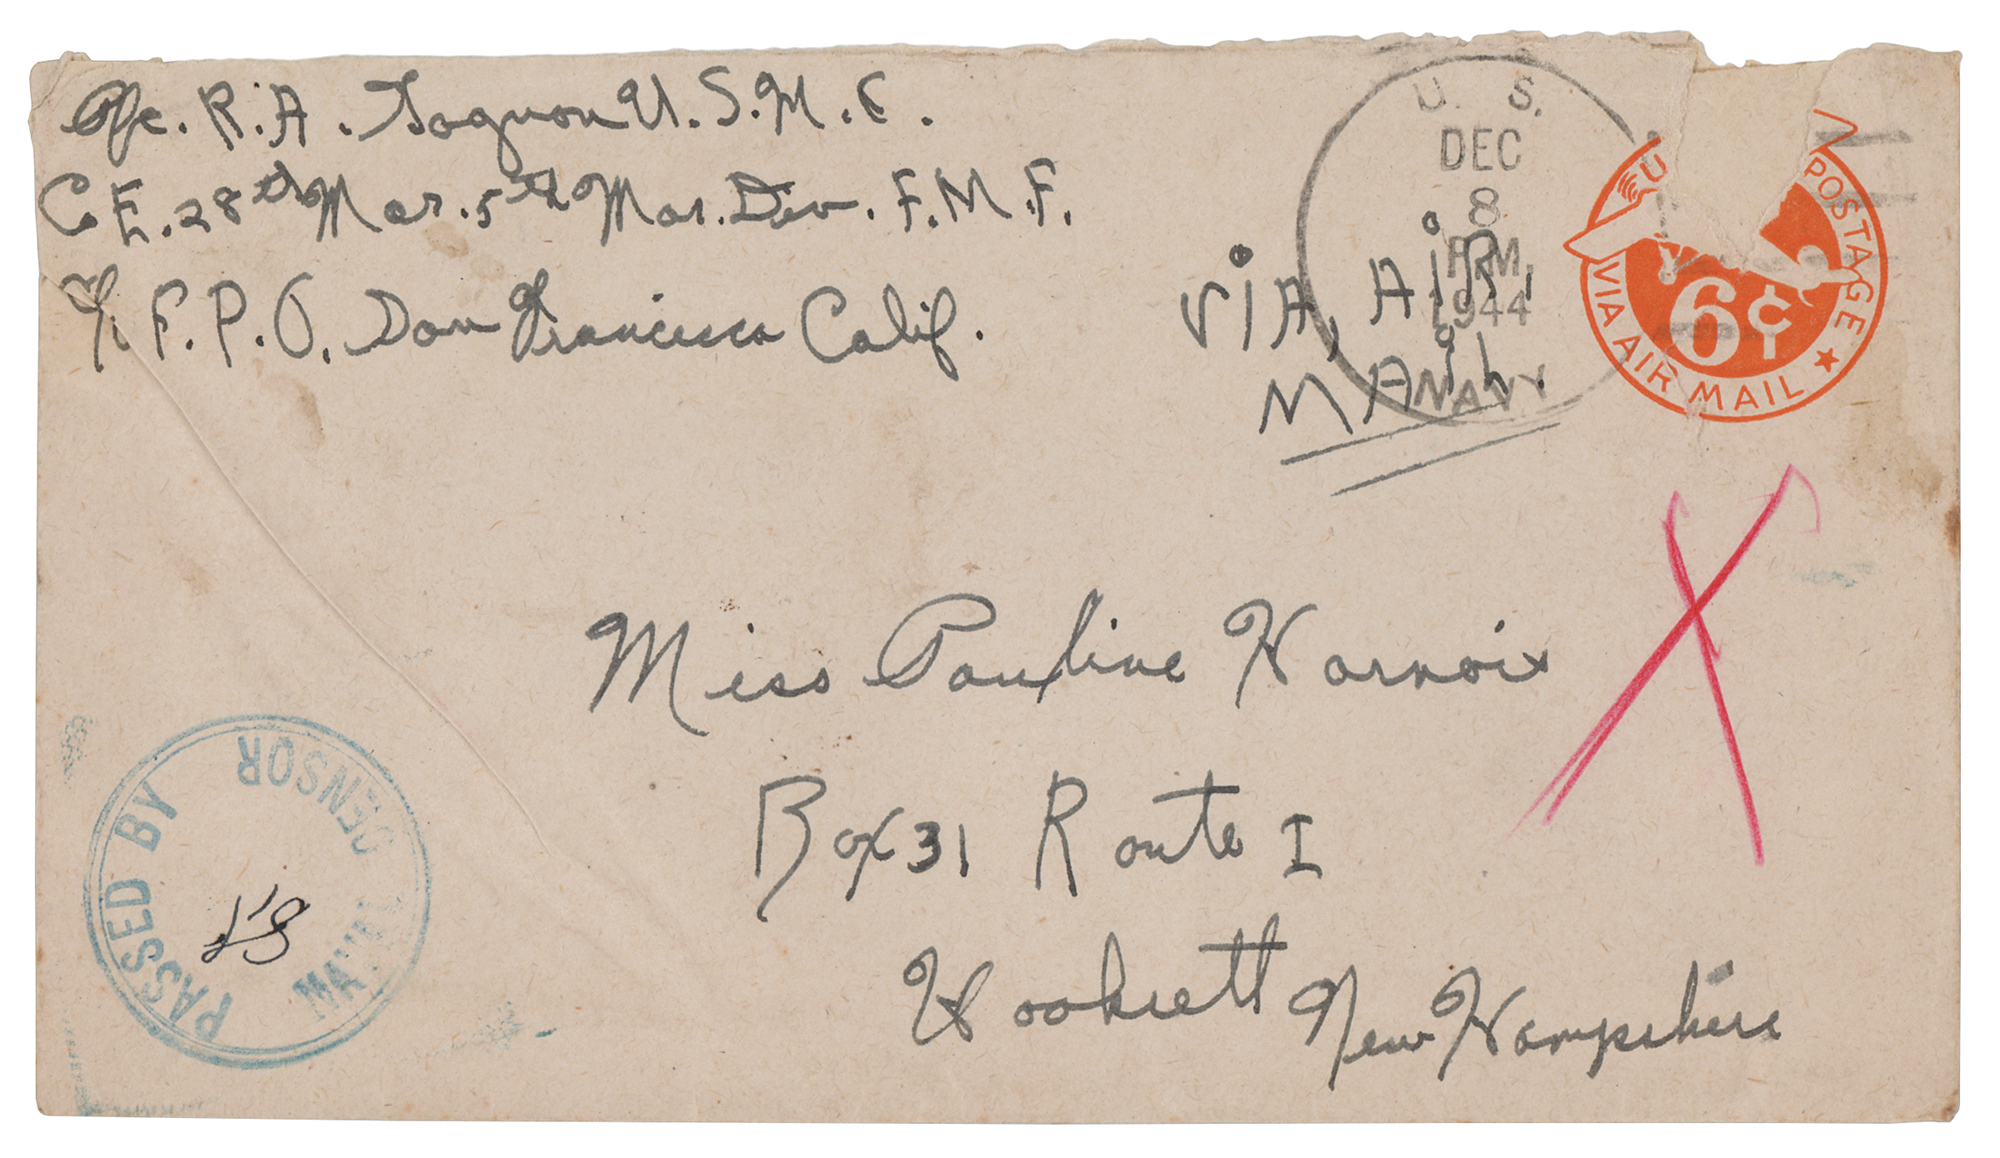 Pfc. R.A. Gagnon U.S.M.C.
Co E. 28th Mar. 5th Mar. Div. F.M.F.
℅ F.P.O. San Francisco Calif.
U. S.
DEC
8
P.M.
1944
NAVY
ViA, AiR,
MAiL.
U POSTAGE
6¢
VIA AIR MAIL
Miss Pauline Harnois
Box 31 Route I
Hooksett New Hampshire
PASSED BY
NAVAL CENSOR